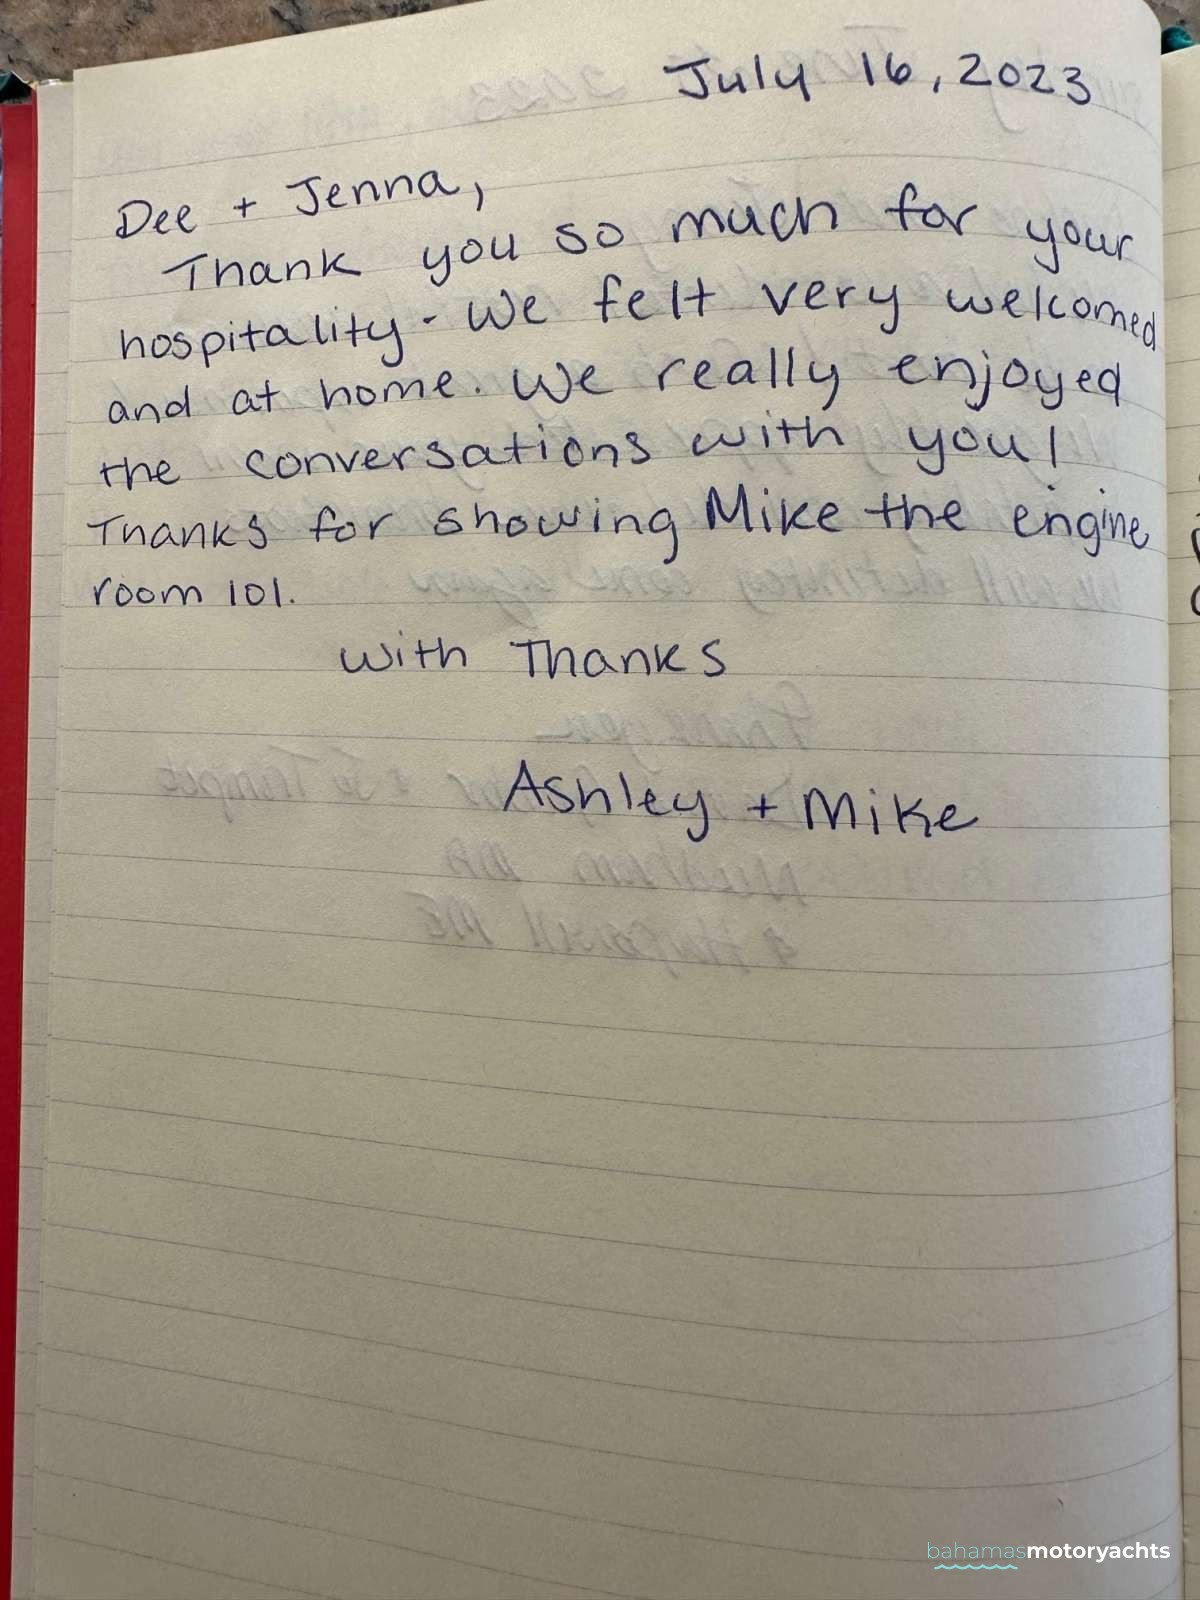 July 16, 2023
Dee + Jenna,
Thank you so much for your
hospitality. We felt very welcomed
and at home. We really enjoyed
the conversations with you!
Thanks for showing Mike the engine
room 101.
with Thanks
Ashley + Mike
bahamasmotoryachts